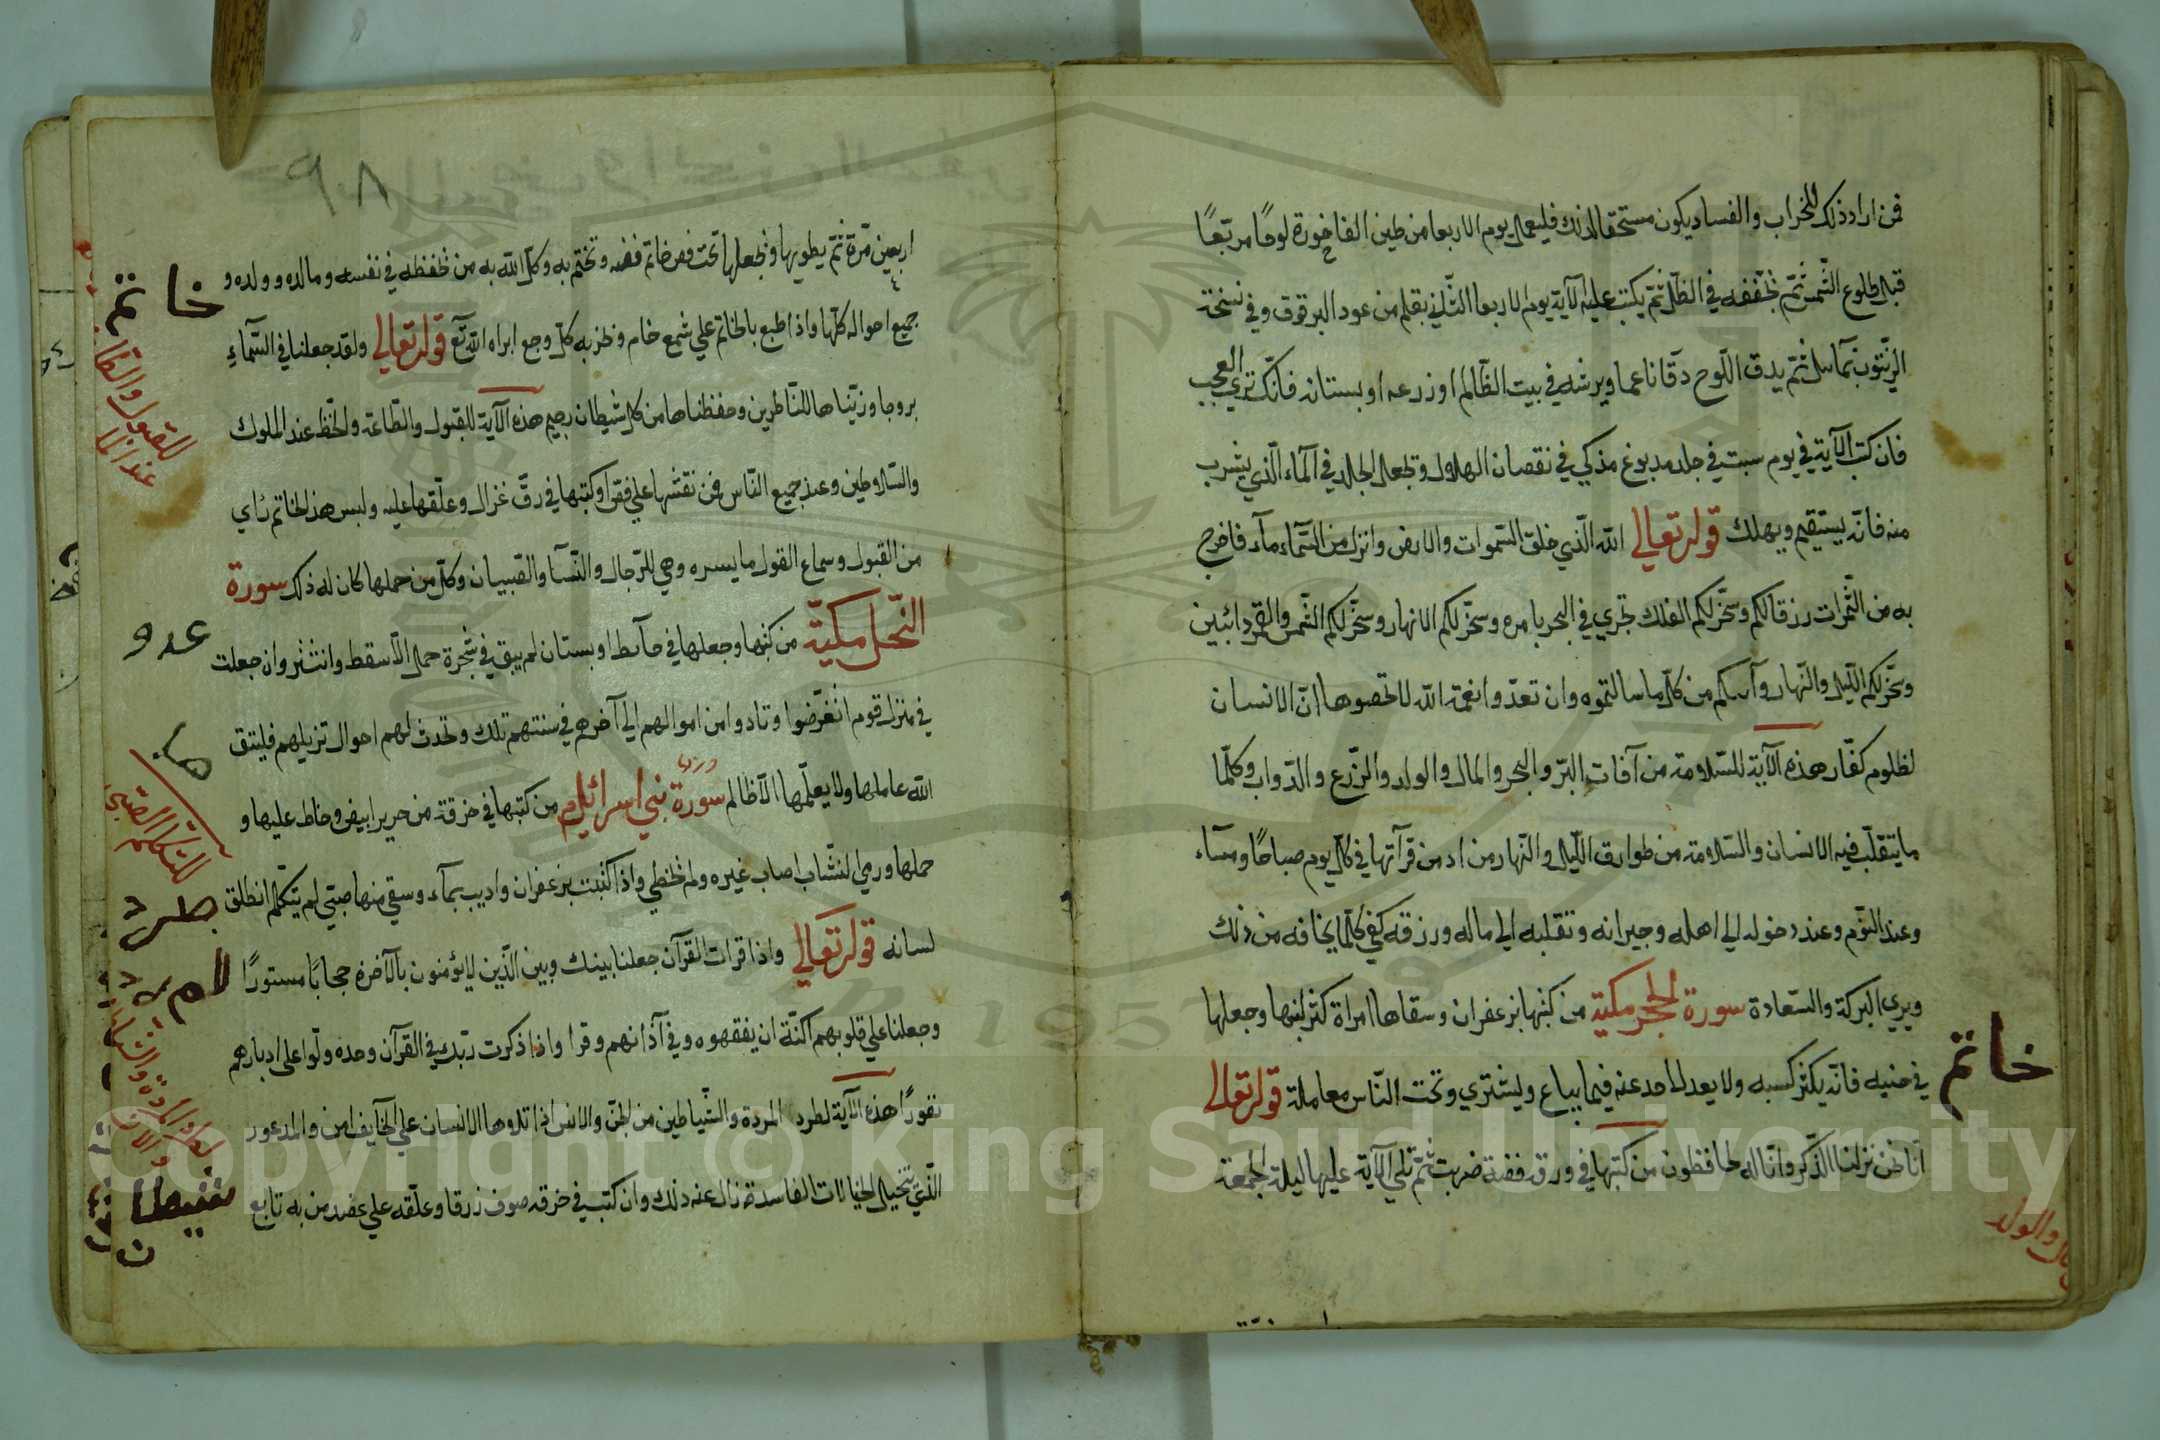 فمن اراد ذلك للخراب والفساد يكون مستحقا لذلك فليعمل يوم الاربعا من طين الفاخورة لوحًا مربّعًا
قبل طلوع الشّمس ثمّ يجففه في الظّل ثمّ يكتب عليه الآية يوم الاربعا الثّاني بقلم من عود البرقوق وفي نسخة
الزّيتون ثمّ يدق اللّوح دقّا ناعما ويرشه في بيت الظّالم او زرعه او بستانه فانّك تري العجب
فان كتب الآية في يوم سبت في جلد مدبوغ مذكي في نقصان الهلال وتجعل الجلد في المآء الّذي يشرب
منه فانّه يستقيم ويهلك قوله تعالي الله الّذي خلق السّموات والارض وانزل من السّماء مآء فاخرج
به من الثّمرات رزقا لكم وسخّر لكم الفلك تجري في البحر بامره وسخّر لكم الانهار وسخّر لكم الشّمس والقمر دائبين
وسخّر لكم اللّيل والنّهار وآتيكم من كلّ ما سالتموه وان تعدّوا نعمة الله لا تحصوها انّ الانسان
لظلوم كفّار هذه الآية للسّلامة من آفات البرّ والبحر والمال والولد والزّرع والدّواب وكلّما
ما يتقلّب فيه الانسان والسّلامة من طوارق اللّيل والنّهار من ادمن قرآتها في كلّ يوم صباحًا ومسآء
وعند النّوم وعند دخوله الي اهله وجيرانه وتقلبه الي ماله ورزقه كفي كلّما يخافه من ذلك
ويري البركة والسّعادة سورة الحجر مكية من كتبها بزعفران وسقاها امراة كثر لبنها وجعلها
في جنبه فانّه يكثر كسبه ولا يعدل احد عنه فيما يباع ويشتري وتحت النّاس معاملة قوله تعالي
انّا نحن نزلنا الذّكر وانّا له لحافظون من كتبها في ورق فضة ضربت ثمّ تلي الآية عليها ليلة الجمعة
خاتم
والولد
٩٨
اربعين مرّة ثمّ يطويها ويجعلها تحت فص خاتم فضه وتختم به وكّل الله به من يحفظه في نفسه وماله وولده و
جميع احواله كلّها واذا طبع بالخاتم علي شمع خام وبخر به كلّ وجع ابراه الله تع قوله تعالي ولقد جعلنا في السّمآء
بروجا وزيّناها للنّاظرين وحفظناها من كل شيطان رجيم هذه الآية للقبول والطّاعة والحظّ عند الملوك
والسّلاطين وعند جميع النّاس فمن نقشها علي فص او كتبها في رقّ غزال وعلّقها عليه ولبس هذا الخاتم رأي
من القبول وسماع القول ما يسره وهي للرّجال والنّسآ والصّبيان وكلّ من حملها كان له ذلك سورة
النّحل مكيّة من كتبها وجعلها في حآئط او بستان لم يبق في شجرة حمل الّا سقط وانتثر وان جعلت
في منزل قوم انقرضوا وتادوا من اموالهم الي آخرهم في سنتهم تلك وتحدث لهم احوال تزيلهم فليتق
الله عاملها ولا يعلّمها الّا ظالم سورة بني اسرائيل من كتبها في خرقة من حرير ابيض وخاط عليها و
حملها ورمي لنشّاب اصاب غيره ولم يخطي واذا كتبت بزعفران واديب بمآء وسقي منها صبيّ لم يتكلّم انطلق
لسانه قوله تعالي واذا قرات القرآن جعلنا بينك وبين الّذين لا يؤمنون بالآخرة حجابًا مستورًا
وجعلنا علي قلوبهم اكنّة ان يفقهوه وفي آذانهم وقرا واذا ذكرت ربّك في القرآن وحده ولّوا علي ادبارهم
نفورًا هذه الآية لطرد المردة والشّياطين من الجنّ والانس اذا تلاوها الانسان علي الخايف امن والمدعور
الّذي تتخيل الخيالات الفاسدة زال عنه ذلك وان كتب في خرقه صوف زرقا وعلّقه علي عضد من به تابع
خاتم
للقبول والطّا
عند الملا
عدو
للتكلّم الصّبي
Copyright © King Saud University
1957